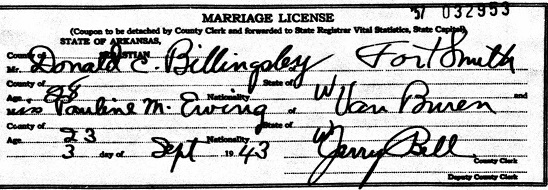 MARRIAGE LICENSE
'57 032953
(Coupon to be detached by County Clerk and forwarded to State Registrar Vital Statistics, State Capitol)
STATE OF ARKANSAS,
County of SEBASTIAN
Mr. Donald E. Billingsley of Fort Smith
County of State of
Age 28 Nationality W and
Miss Pauline M. Ewing of Van Buren
County of State of
Age 23 Nationality W
3 day of Sept 1943 Jerry Bell
County Clerk
Deputy County Clerk